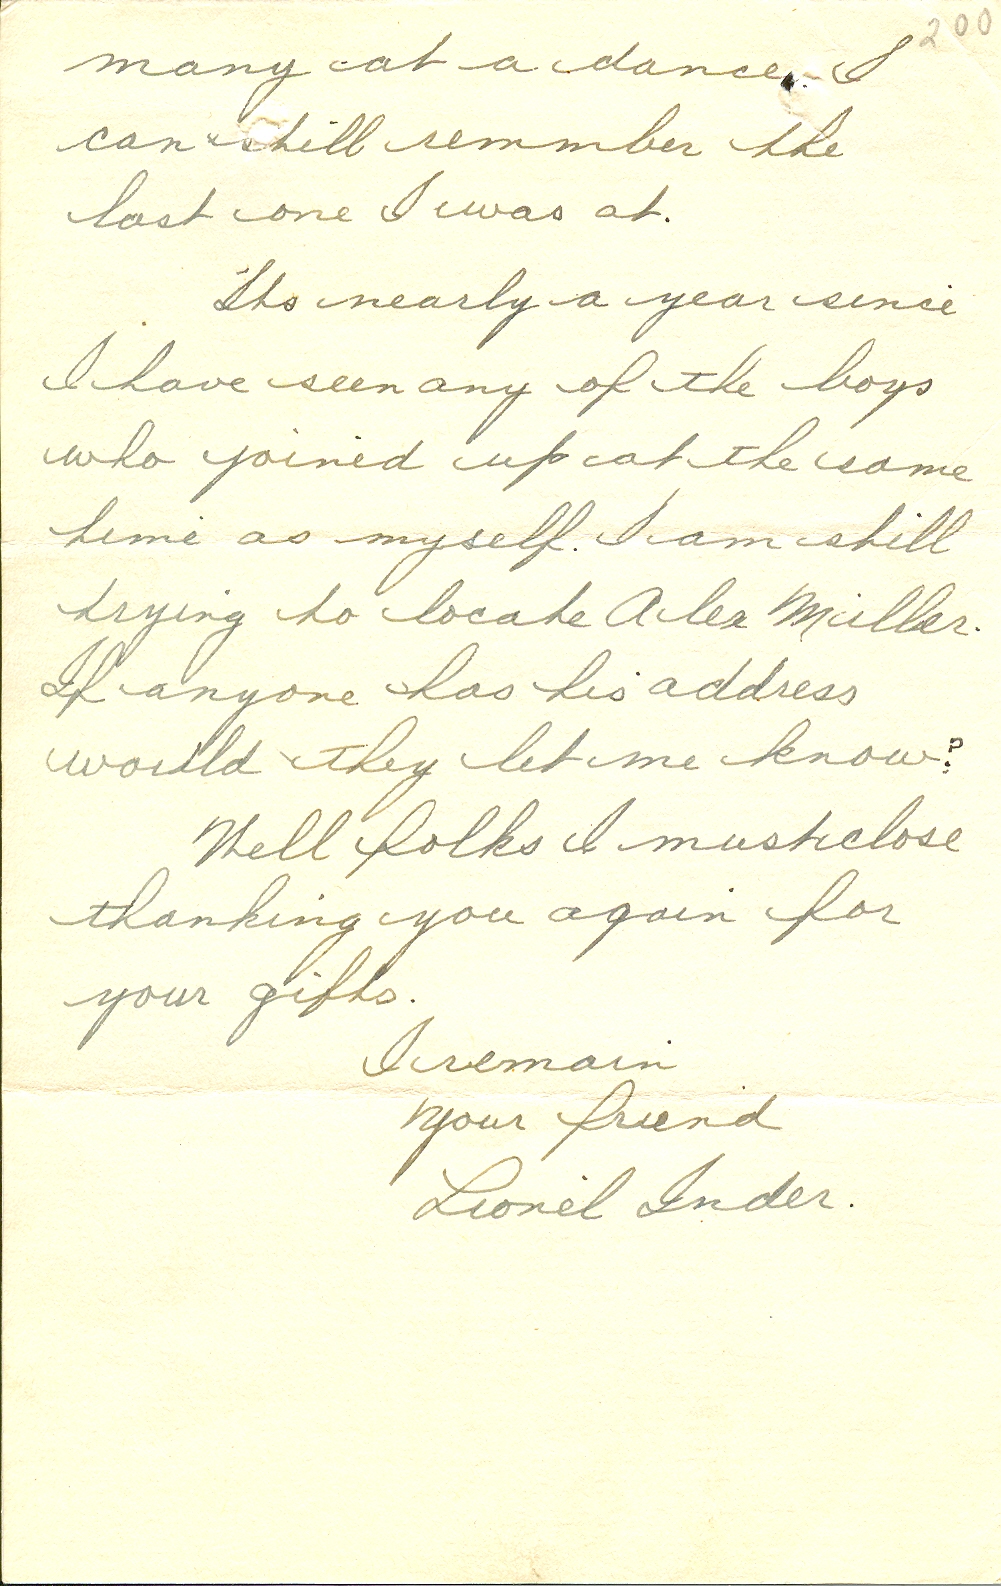 200
many at a dance. I
can still remmber the
last one I was at.
Its nearly a year since
I have seen any of the boys
who joined up at the same
time as myself. I am still
trying to locate Alex Miller.
If anyone has his address
would they let me know?
Well folks I must close
thanking you again for
your gifts.
I remain
Your friend
Lionel Inder.